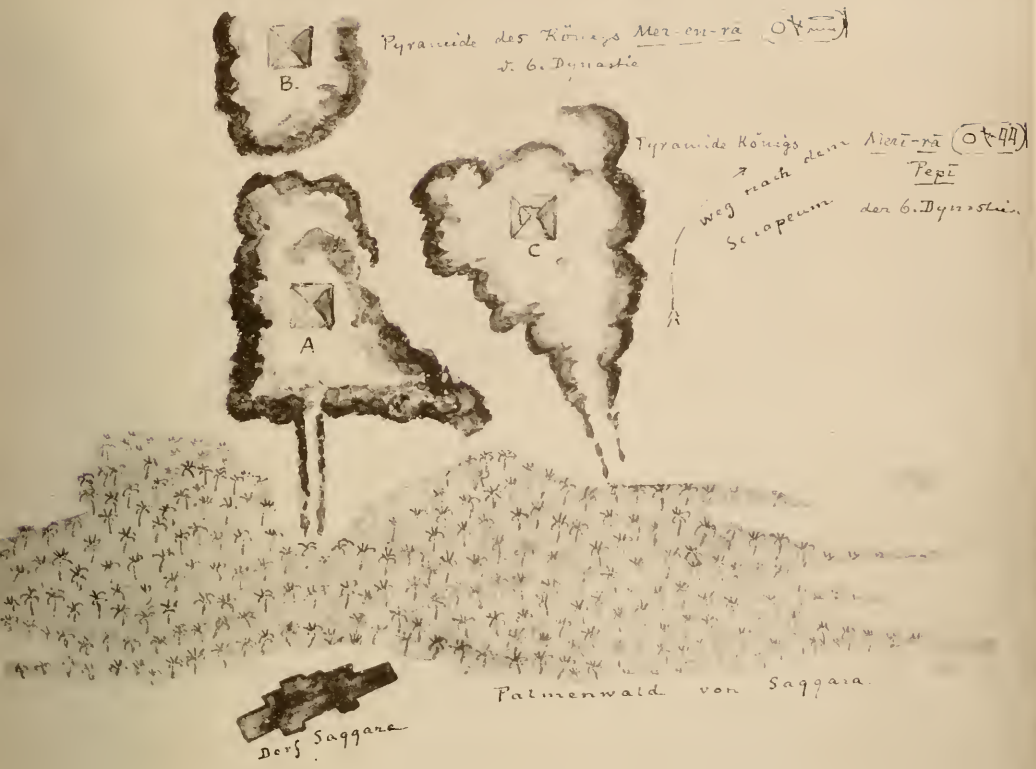 Pyramide des Königs Mer-en-rā
d. 6. Dynastie
B.
Pyramide Königs Merī-rā
Pepī
der 6. Dynastie.
weg nach dem
Serapeum
C
A
Palmenwald von Saqqara.
Dorf Saqqara